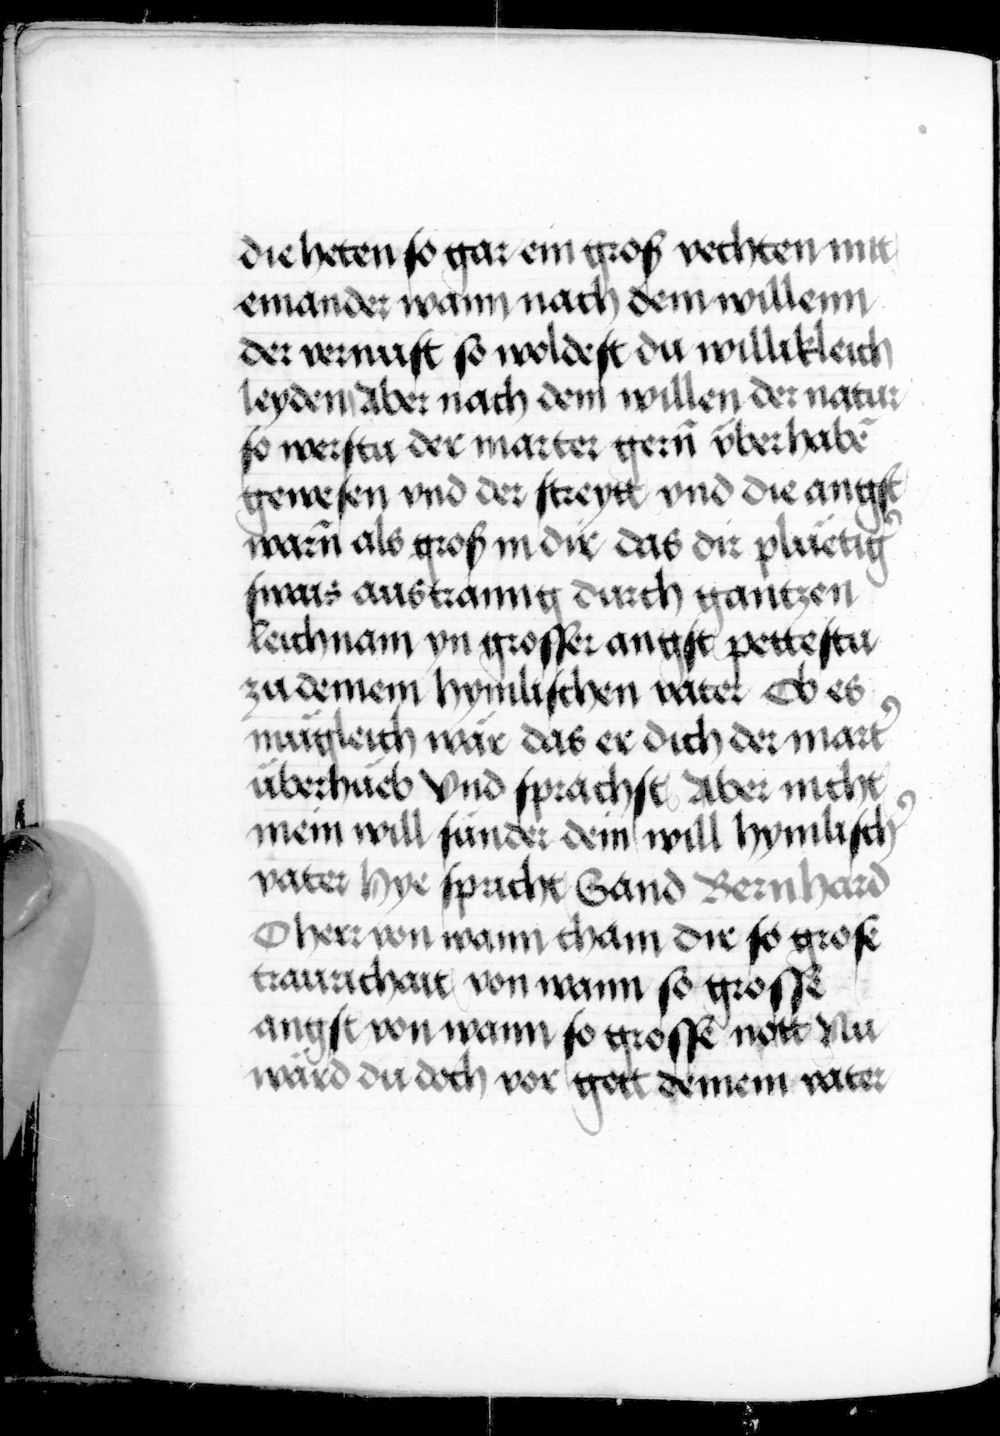 die heten so gar ein groß vechten mit
einander wann nach dem willenn
der vernuft so woldest du willikleich
leyden Aber nach dem willen der natur
so werstu der marter gern̄ v̈berhabē
gewesen vnd der streytt vnd die angst
warn̄ als groß in dir das dir plüetig᾽
swais austranng durch gantzen
leichnam yn grosser angst pettestu
zu deinem hymlischen vater Ob es
mügleich wär das er dich der mart᾽
überhüeb Vnd sprachst Aber nicht
mein will sünder dein will hymlisch᾽
vater Hye spricht Sand Bernhard
O herr von wann cham dir so grose
traurichait von wann so grosse
angst von wann so grosse nott Nu
wärd du doch vor gott deinem vater